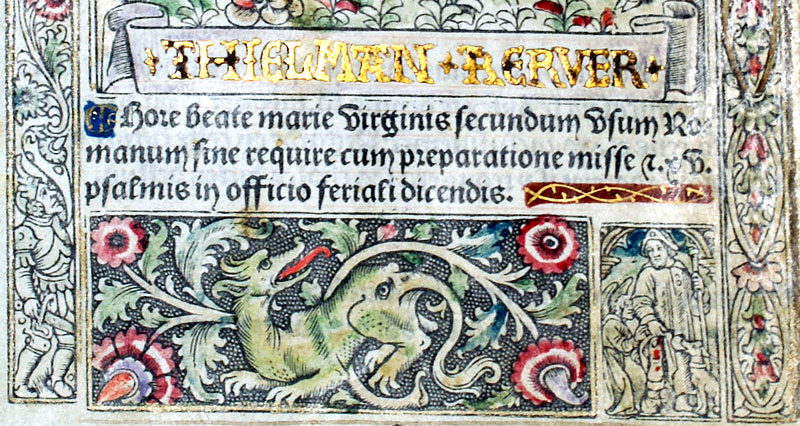 THIELMAN KERVER
Hore beate marie Virginis secundum Vsum Ro-
manum sine require cum preparatione misse ⁊. xv.
psalmis in officio feriali dicendis.